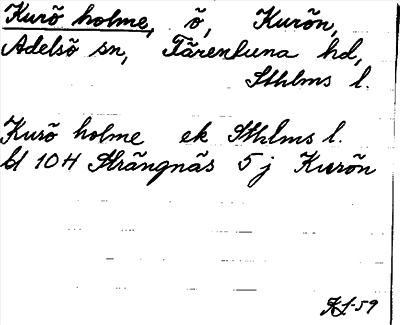 Kurö holme, ö, Kurön,
Adelsö sn, Färentuna hd,
Sthlms l.
Kurö holme ek Sthlms l.
bl 104 Strängnäs 5 j Kurön
KL-59